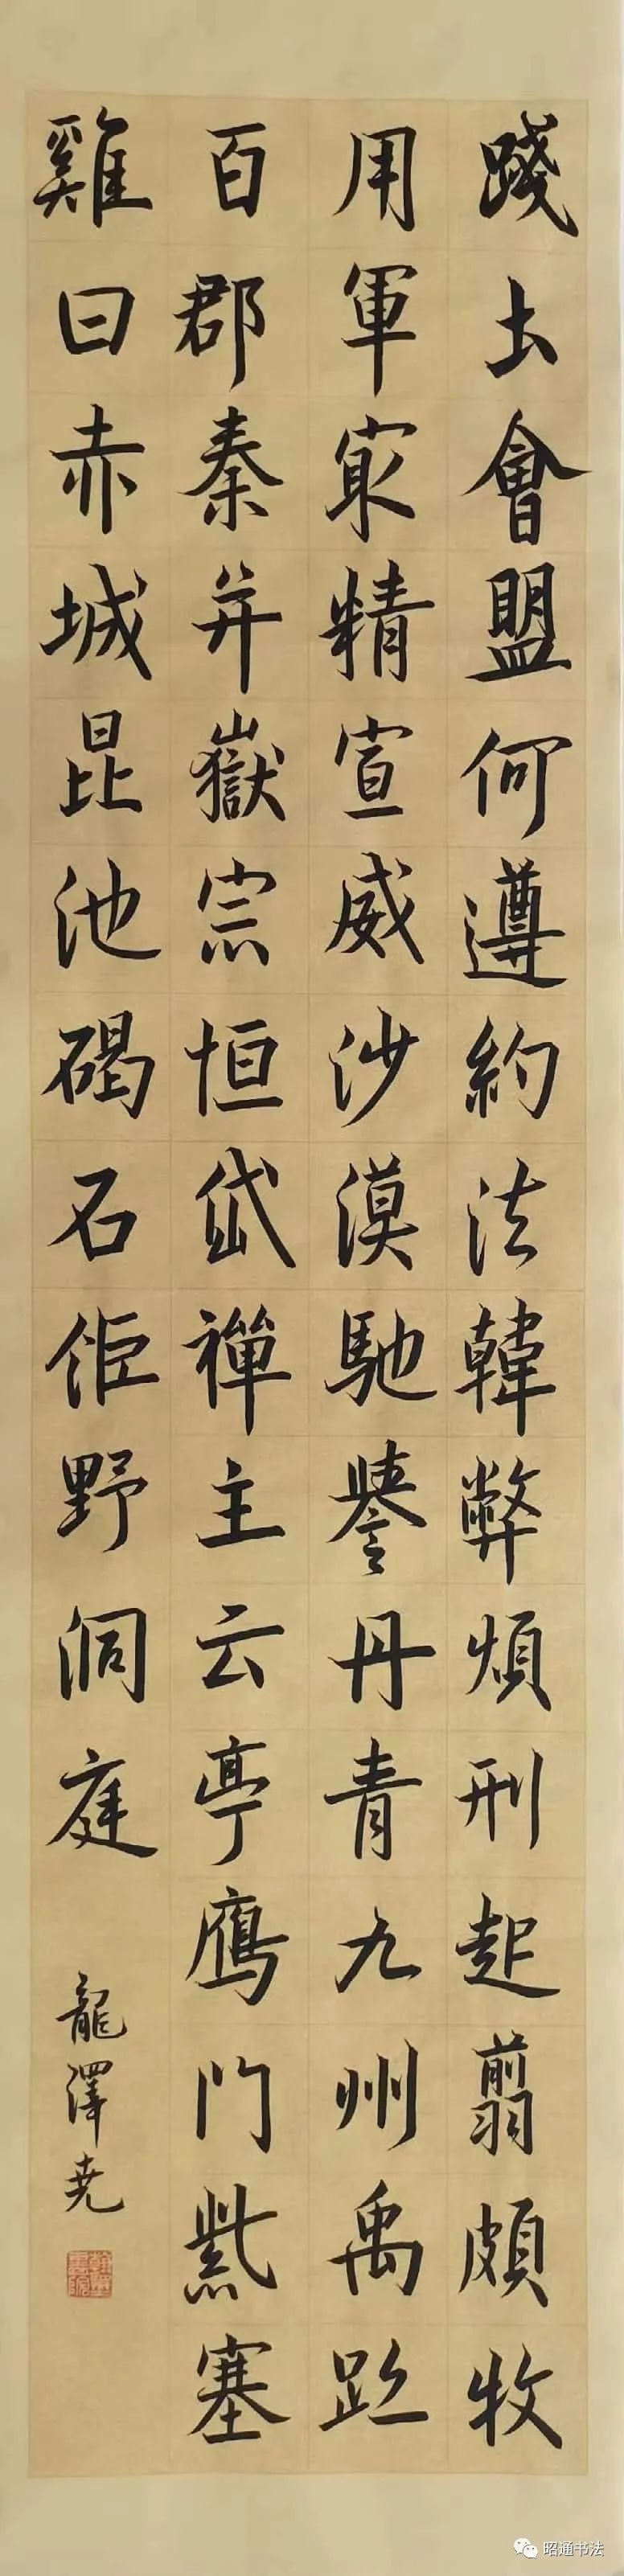 踐土會盟何遵約法韓弊煩刑起翦頗牧
用軍冣精宣威沙漠馳譽丹青九州禹跡
百郡秦并嶽宗恒岱禪主云亭鴈門紫塞
雞田赤城昆池碣石鉅野洞庭
龍澤堯
昭通书法